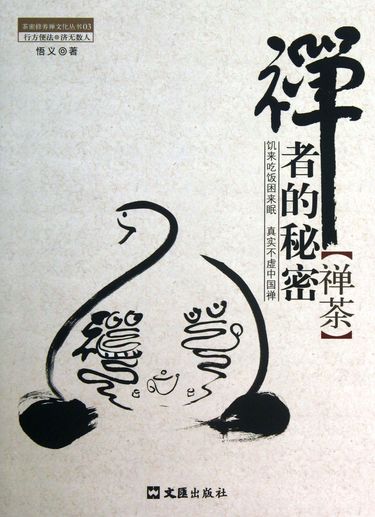 茶密修养禅文化丛书03
行方便法◎济无数人
悟义◎著
禪者的秘密
【禅茶】
饥来吃饭困来眠 真实不虚中国禅
文匯出版社